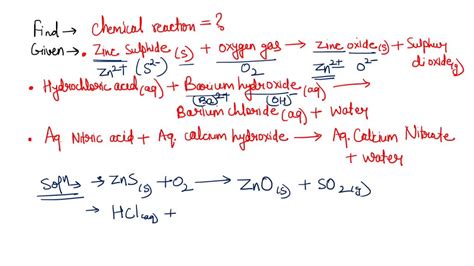 Find → Chemical reaction = ?
Given → • Zinc Sulphide (s) + oxygen gas → Zinc oxide (s) + Sulphur
Zn²⁺ (S²⁻) O₂ Zn²⁺ O²⁻ dioxide(g)
• Hydrochloric acid (aq) + Barium hydroxide (aq) →
(Ba²⁺) (OH)
Barium chloride (aq) + Water
• Aq Nitric acid + Aq. calcium hydroxide → Aq. Calcium Nitrate
+ water
Solⁿ → → ZnS(s) + O₂ → ZnO(s) + SO₂(g)
→ HCl(aq) +